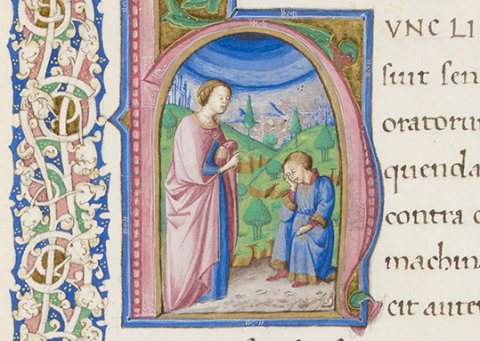 VNC LI
ſuit ſen
oratoriu
quenda
contra c
machin
cit aute